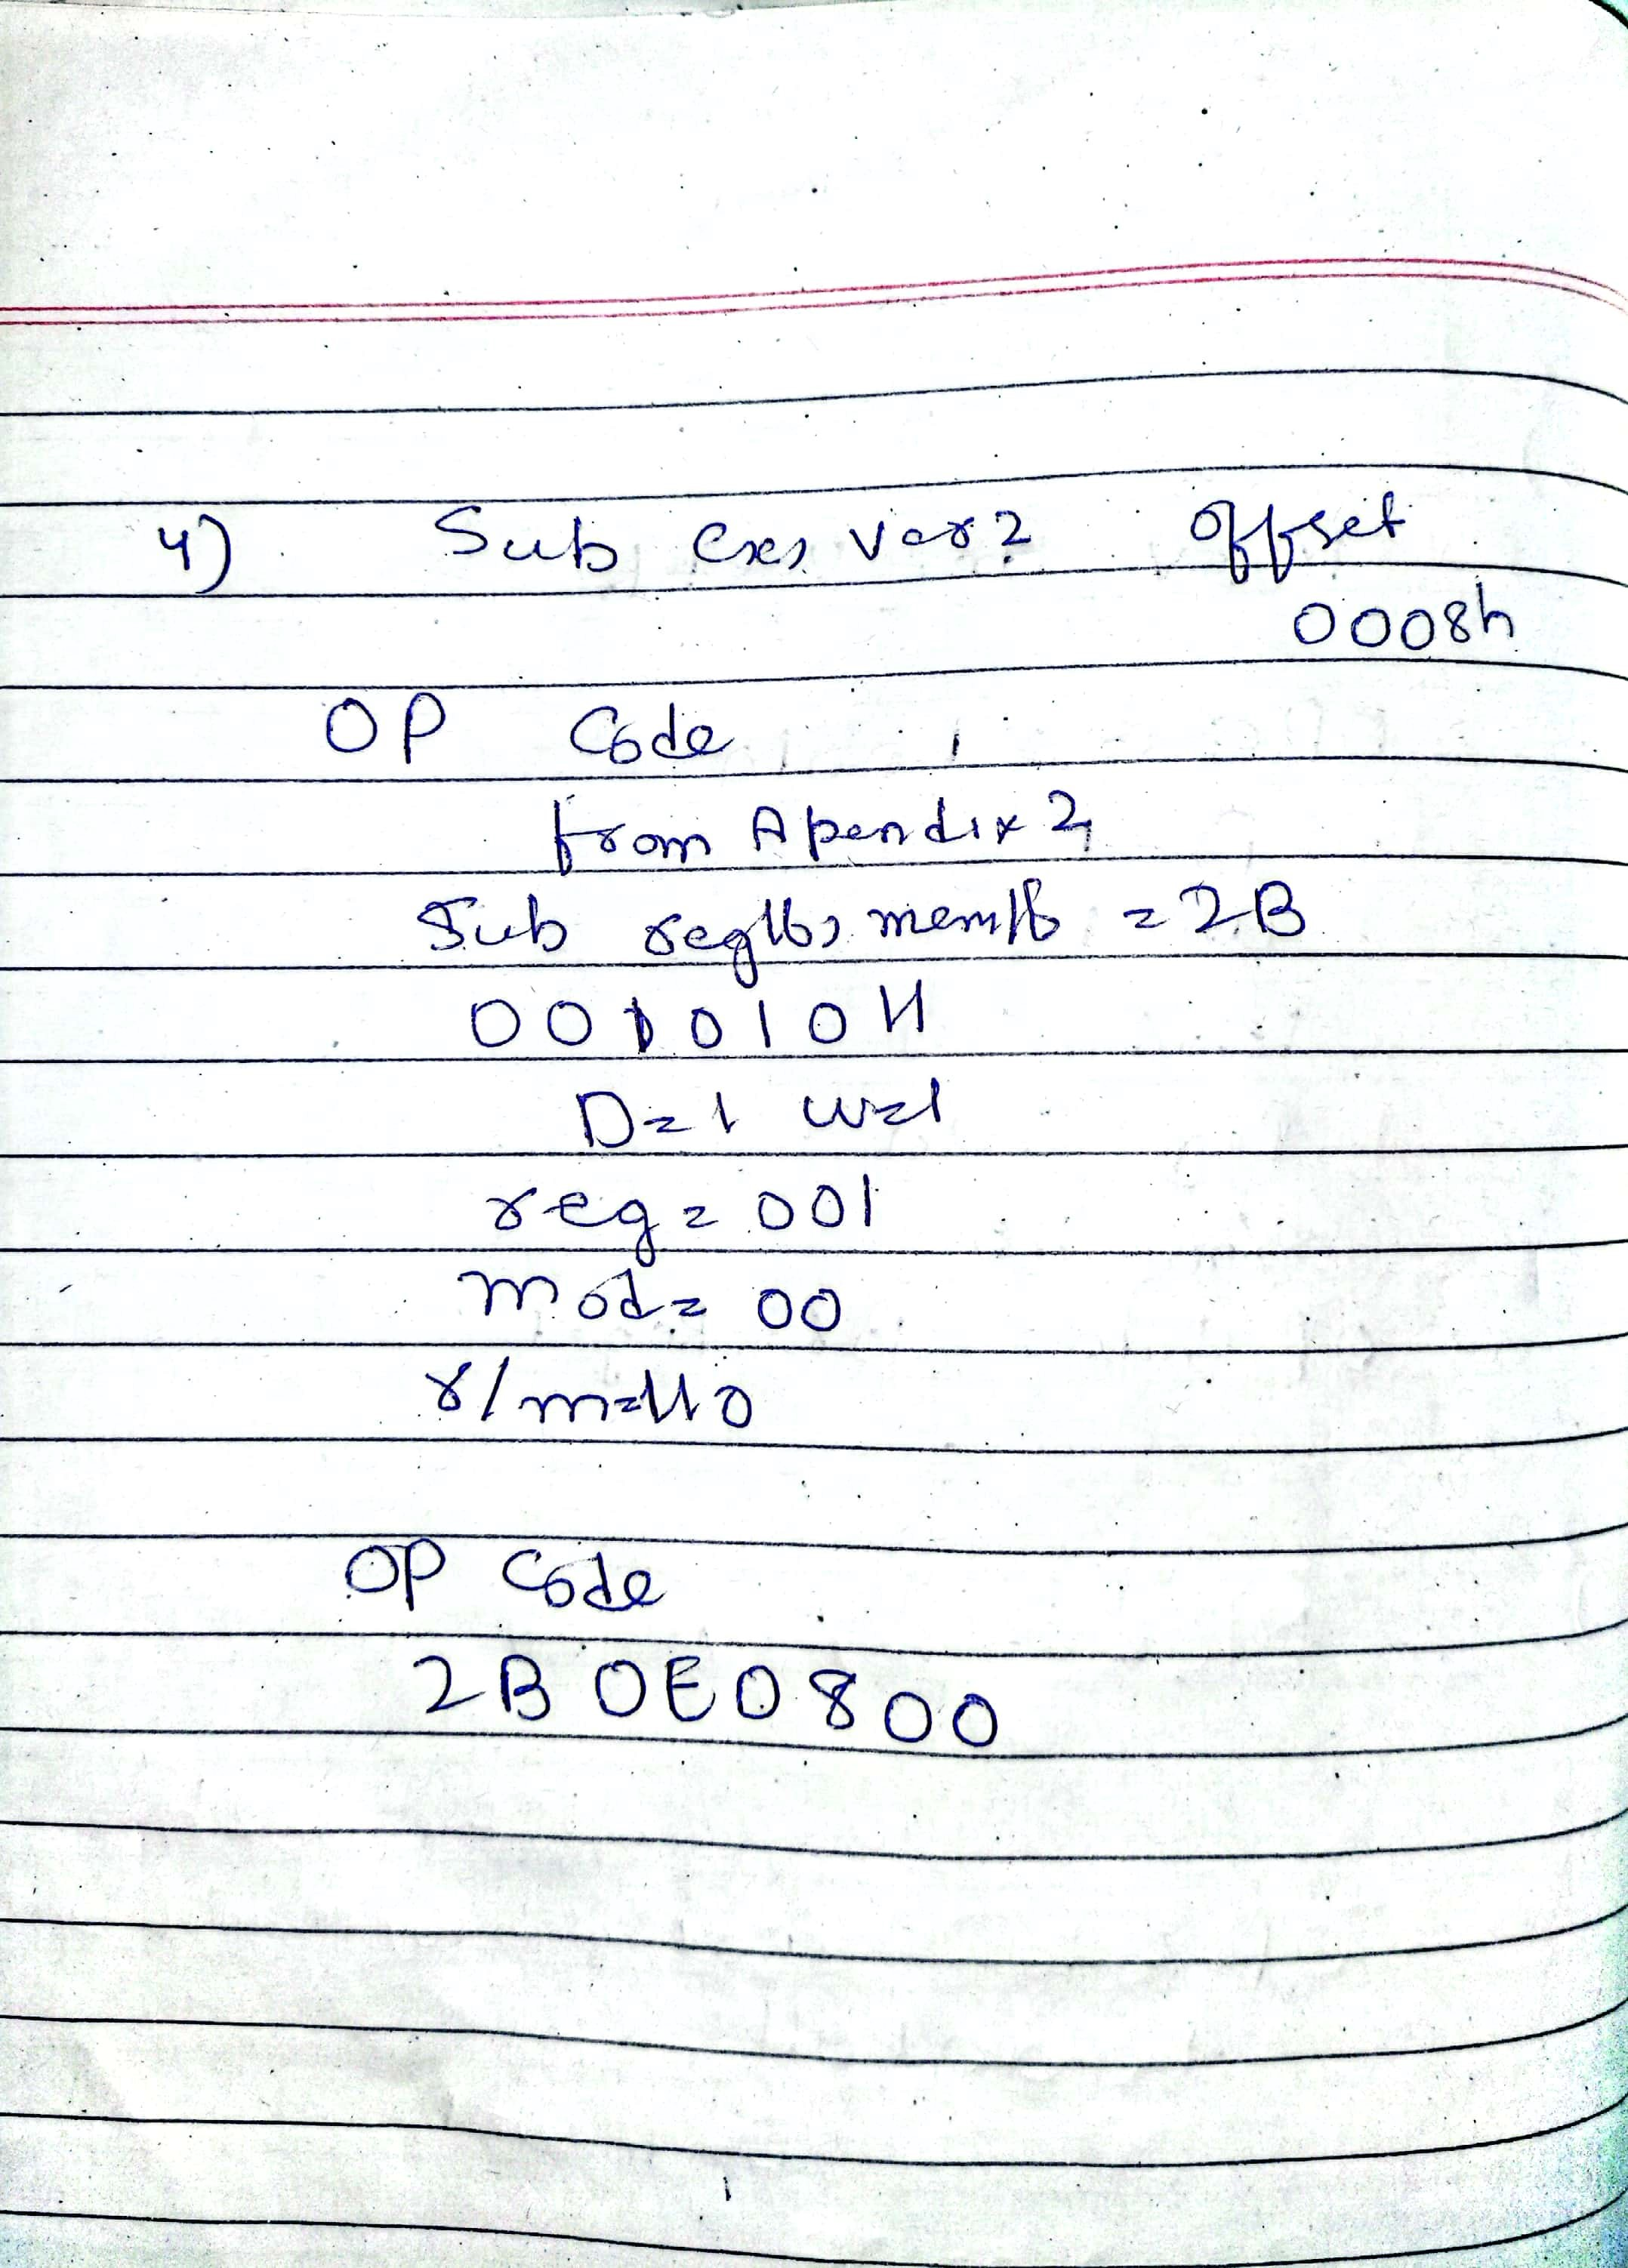 4) Sub Cx, Var2 offset
0008h
OP Code
from Apendix 2
Sub reg16, mem16 = 2B
00101011
D=1 w=1
reg = 001
mod = 00
r/m=110
OP Code
2B 0E0800